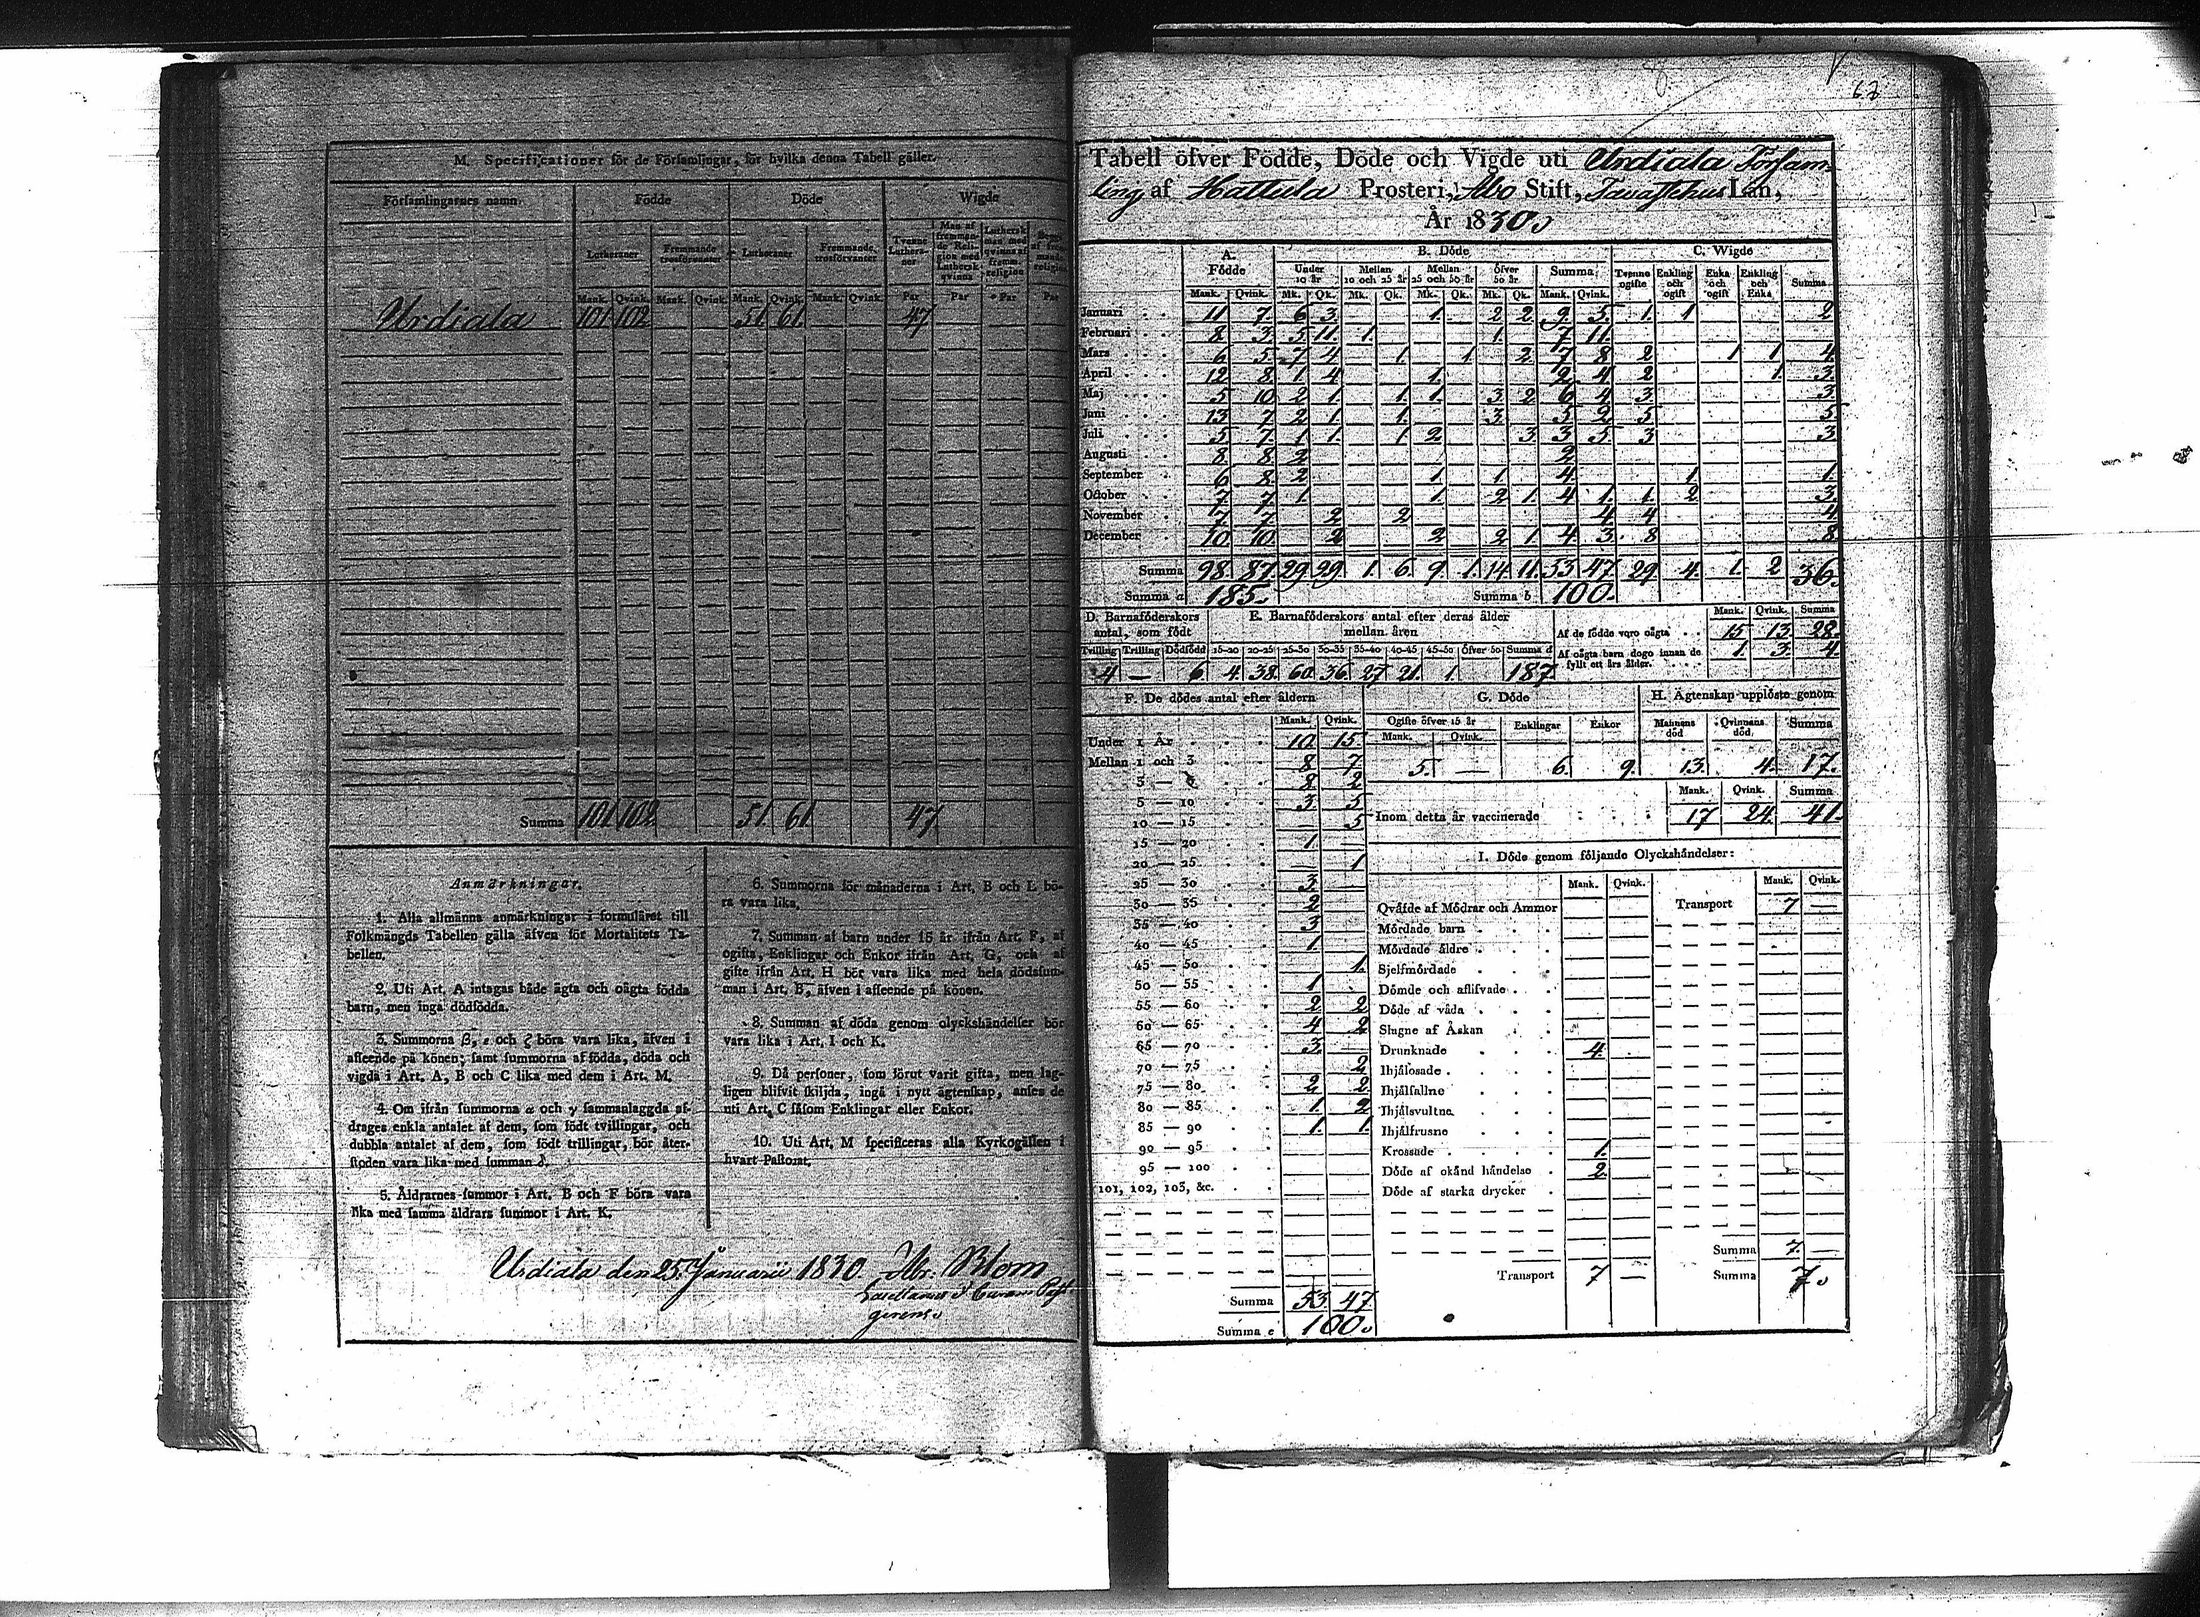 M. Specificationer för de Församlingar, för hvilka denna Tabell gäller.
Församlingarnes namn. Födde Döde Wigde
Lutheraner Fremmande trosförvanter Lutheraner Fremmande trosförvanter Tvenne Lutheraner Man af fremmande Religion med Luthersk qvinna Luthersk man med qvinna af fremm. religion
Mank. Qvink. Mank. Qvink. Mank. Qvink. Mank. Qvink. Par Par Par Par
Urdiala 101 102 51 61 47
Summa 101 102 51 61 47
Anmärkningar.
1. Alla allmänna anmärkningar i formuläret till
Folkmängds Tabellen gälla äfven för Mortalitets Ta-
bellen.
2. Uti Art. A intagas både ägta och oägta födda
barn, men inga dödfödda.
3. Summorna β, ε och ζ böra vara lika, äfven i
afseende på könen; samt summorna af födda, döda och
vigda i Art. A, B och C lika med dem i Art. M.
4. Om ifrån summorna α och γ sammanlagda af-
drages enkla antalet af dem, som födt tvillingar, och
dubbla antalet af dem, som födt trillingar, bör åter-
stoden vara lika med summan δ.
5. Åldrarnes summor i Art. B och F böra vara
lika med samma åldrars summor i Art. K.
6. Summorna för månaderna i Art. B och L bö-
ra vara lika.
7. Summan af barn under 15 år ifrån Art. F, af
ogifta, Enklingar och Enkor ifrån Art. G, och af
gifte ifrån Art. H bör vara lika med hela dödsum-
man i Art. B, äfven i afseende på könen.
8. Summan af döda genom olyckshändelser bör
vara lika i Art. I och K.
9. Då personer, som förut varit gifta, men lag-
ligen blifvit skiljda, ingå i nytt ägtenskap, anses de
uti Art. C såsom Enklingar eller Enkor.
10. Uti Art. M specificeras alla Kyrkogällen i
hvart Pastorat.
Urdiala den 25. Januarii 1830. Abr. Blom
gerens.
62
Tabell öfver Födde, Döde och Vigde uti Urdiala Försam-
ling af Hattula Prosteri, Åbo Stift, Tavastehus Län,
År 1830.
A. Födde B. Döde C. Wigde
Under 10 år Mellan 10 och 25 år Mellan 25 och 50 år Öfver 50 år Summa Tvenne ogifte Enkling och ogift Enka och ogift Enkling och Enka Summa
Mank. Qvink. Mk. Qk. Mk. Qk. Mk. Qk. Mk. Qk. Mank. Qvink.
Januari 11 7 6 3 1 2 2 9 5 1 1 2
Februari 8 3 5 11 1 1 7 11
Mars 6 5 7 4 1 1 2 7 8 2 1 1 4
April 12 8 1 4 1 2 4 2 1 3
Maj 5 10 2 1 1 1 3 2 6 4 3 3
Juni 13 7 2 1 1 3 5 2 5 5
Juli 5 7 1 1 1 2 3 3 5 3 3
Augusti 8 8 2 2
September 6 8 2 1 1 4 1 1
October 7 7 1 1 2 1 4 1 1 2 3
November 7 7 2 2 4 4 4
December 10 10 2 2 2 1 4 3 8 8
Summa 98 87 29 29 1 6 9 1 14 11 53 47 29 4 1 2 36
Summa a 185. Summa b 100.
D. Barnaföderskors antal, som födt E. Barnaföderskors antal efter deras ålder mellan åren Mank. Qvink. Summa
Af de födde voro oägta 15 13 28
Tvilling Trilling Dödfödd 15-20 20-25 25-30 30-35 35-40 40-45 45-50 öfver 50 Summa d
Af oägta barn dogo innan de fyllt ett års ålder. 1 3 4
4 — 6 4 38 60 36 27 21 1 187
F. De dödes antal efter åldern G. Döde H. Ägtenskap upplöste genom
Mank. Qvink. Ogifte öfver 15 år Enklingar Enkor Mannens död Qvinnans död Summa
Mank. Qvink.
5 — 6 9 13 4 17
Under 1 År 10 15
Mellan 1 och 3 8 7
3 — 5 8 2
5 — 10 3 5
10 — 15 — 5
15 — 20 1 —
20 — 25 — 1
25 — 30 3 —
30 — 35 2 —
35 — 40 3 —
40 — 45 1
45 — 50 1
50 — 55 1
55 — 60 2 2
60 — 65 4 2
65 — 70 3
70 — 75 2
75 — 80 2 2
80 — 85 1 2
85 — 90 1 1
90 — 95
95 — 100
101, 102, 103, &c.
Summa 53 47
Summa e 100.
Mank. Qvink. Summa
Inom detta år vaccinerade 17 24 41
I. Döde genom följande Olyckshändelser:
Mank. Qvink. Mank. Qvink.
Qväfde af Mödrar och Ammor Transport 7 —
Mördade barn
Mördade äldre
Sjelfmördade
Dömde och aflifvade
Döde af våda
Slagne af Åskan
Drunknade 4
Ihjälosade
Ihjälfallne
Ihjälsvultne
Ihjälfrusne
Krossade 1
Döde af okänd händelse 2
Döde af starka drycker
Summa 7 —
Transport 7 — Summa 7.